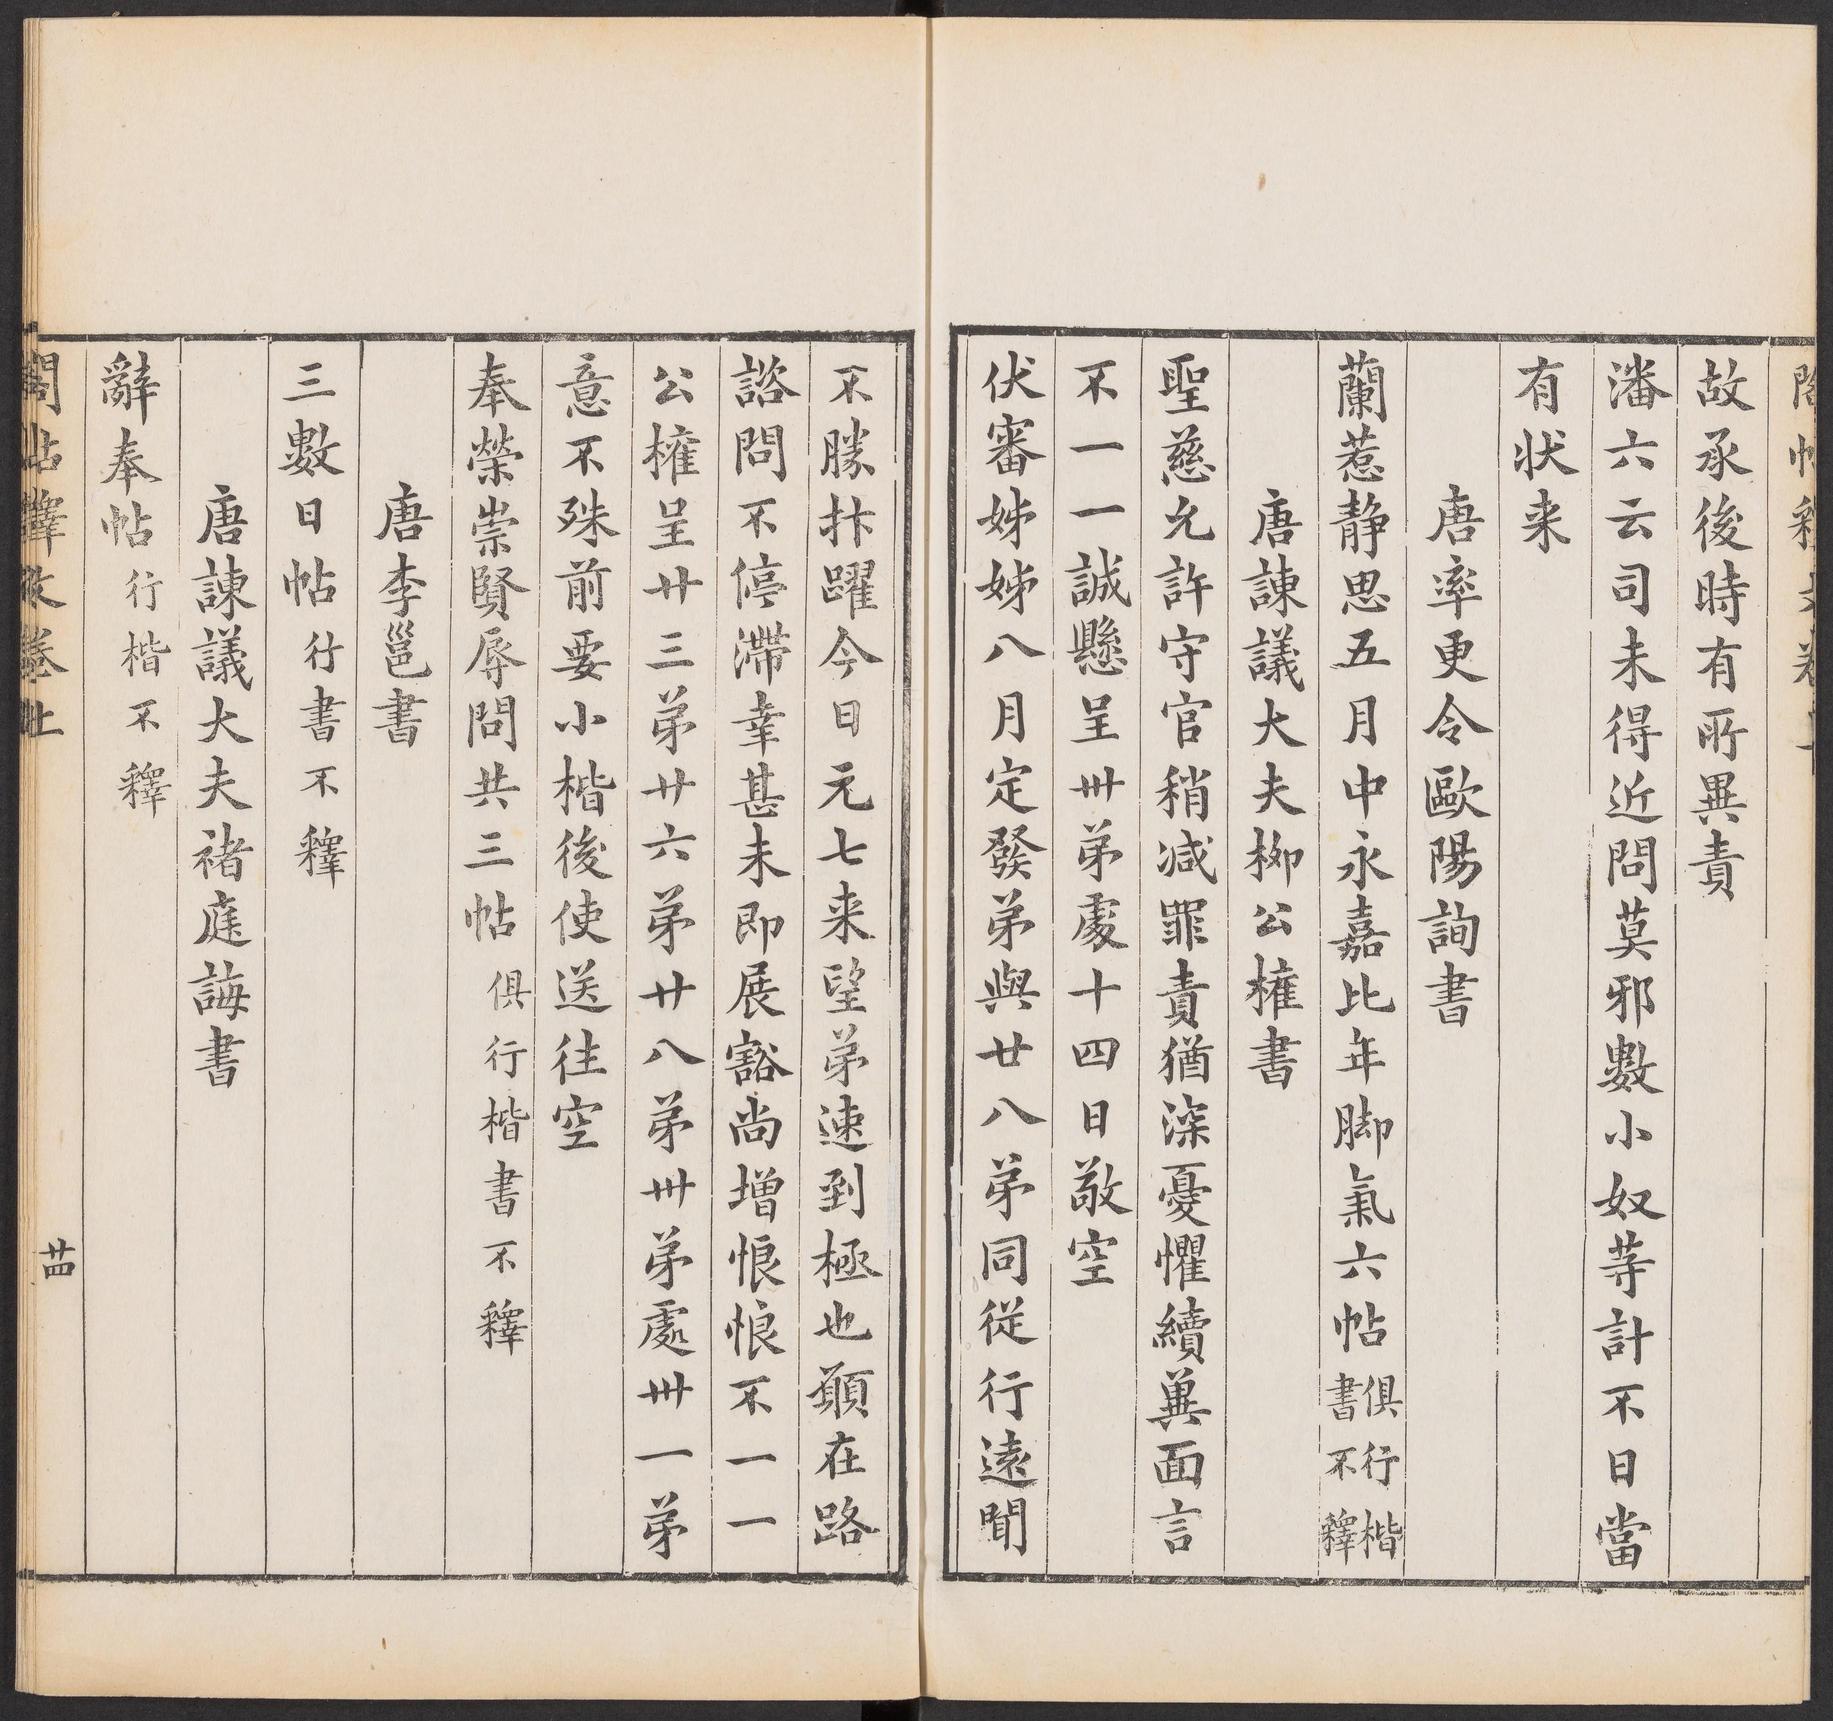 故承後時有所異責
潘六云司未得近問莫邪數小奴等計不日當
有狀来
唐率更令歐陽詢書
蘭惹静思五月中永嘉比年脚氣六帖俱行楷書不釋
唐諫議大夫柳公權書
聖慈允許守官稍減罪責猶深憂懼續冀面言
不一一誠懸呈卅弟處十四日敬空
伏審姊姊八月定發弟與廿八弟同從行遠聞
不勝抃躍今日元七来望弟速到極也顧在路
諮問不停滯幸甚未即展豁尚增悢悢不一一
公權呈廿三弟廿六弟廿八弟卅弟處卅一弟
意不殊前要小楷後使送往空
奉榮崇賢辱問共三帖俱行楷書不釋
唐李邕書
三數日帖行書不釋
唐諫議大夫褚庭誨書
辭奉帖行楷不釋
廿四